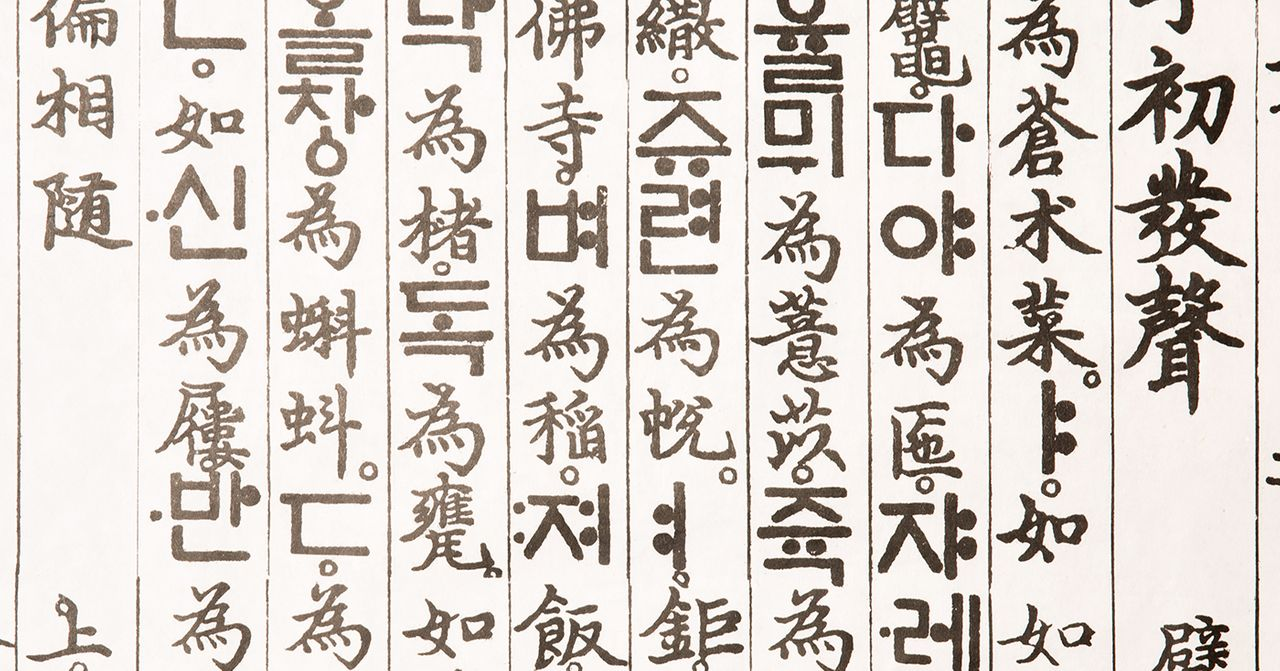 初發聲
為蒼朮菜。ㅑ。如如
鼊。다야為匜。쟈레
율믜為薏苡。쥭為
繖。쥬련為帨。ㅕ。鉅。
佛寺。벼為稻。져飯。
닥為楮。독為甕。如
올차ᇰ為蝌蚪。ㄷ。為
ㄴ。如신為屨。반為
偏相隨上。